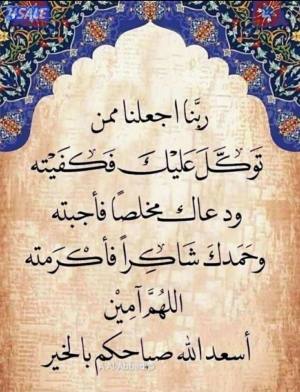 4SALE
ربَّنا اجعلنا ممن
توَكَّلَ عَليْكَ فَكَفَيْته
ودعاك مخلصاً فأجبته
وحَمَدكَ شَاكِراً فأكْرَمته
اللهُمَّ آمِيْن
A.Al Abbad.©
أسعد الله صباحكم بالخير